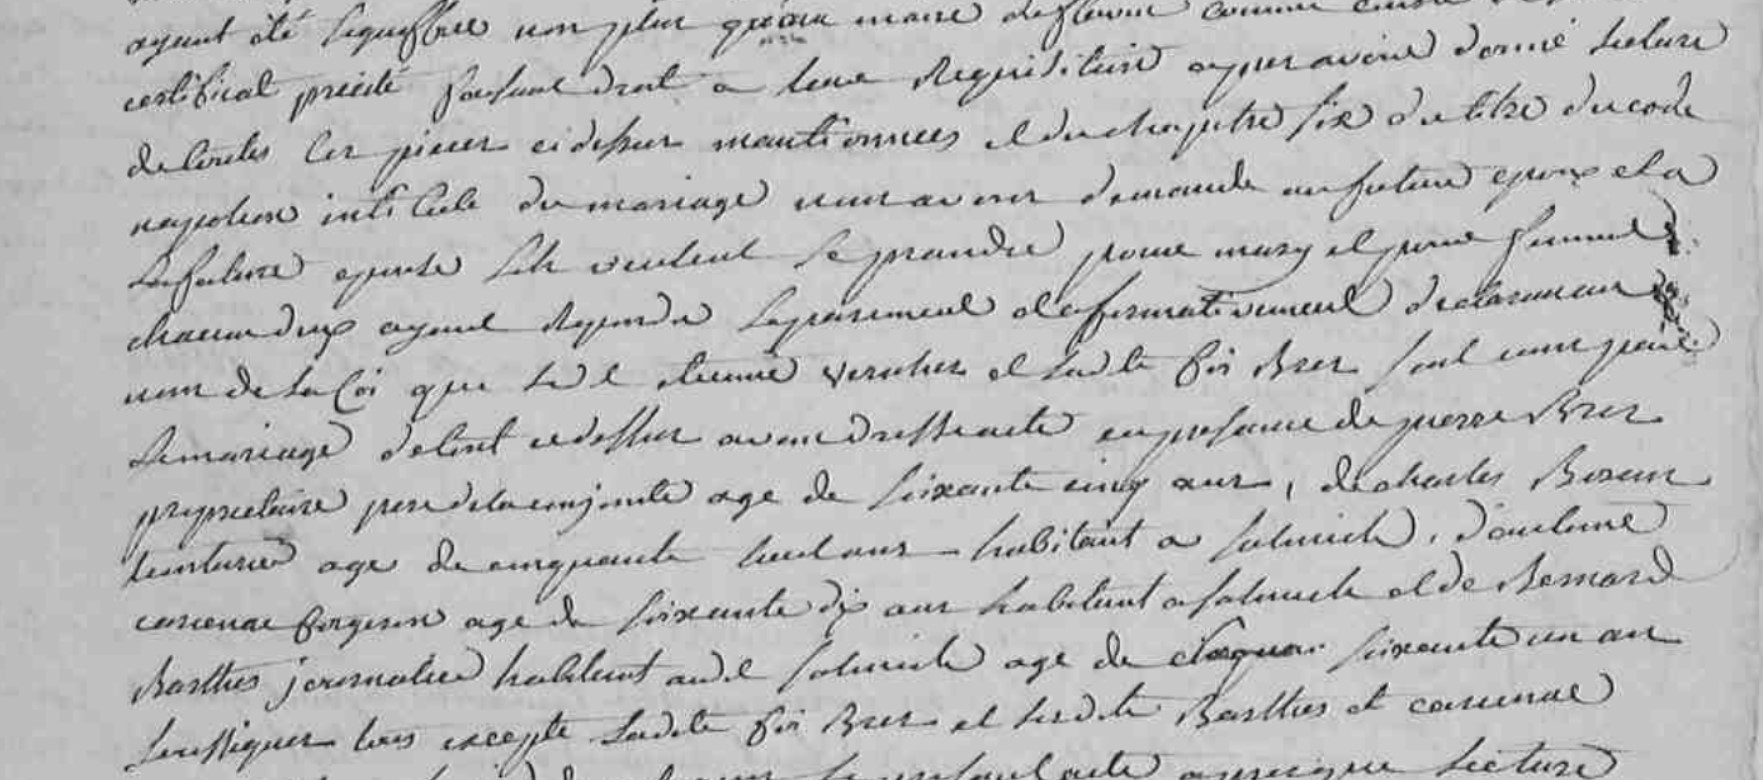 ayant été signiffiée non plus qu'au maire comme
certifical précité faisant droit a leur Requisition apres avoir donné lecture
de toutes les pieces ci dessus mantionnees et du chapitre six du titre du code
napoleon intitulé du mariage nous avons demandé au futur epoux et a
la future epouse s'ils veulent se prandre pour mary et pour femme
chacun d'eux ayant repondu separement et afirmativement declarons au
nom de la loi que led etienne et ladite foi Bres sont unis par le
mariage de tout ce dessus avons dressé acte en presance de pierre Bres
propriétaire pere de la conjointe age de soixante cinq ans, de charles
teinturier age de cinquante huit ans habitant a d'antoine
forgeron age de soixante dix ans habitant a et de Bernard
Barthes journalier habitant aud age de soixante un ans
soussignes tous excepté ladite foi Bres et lesdits Barthes et
acte apres que lecture